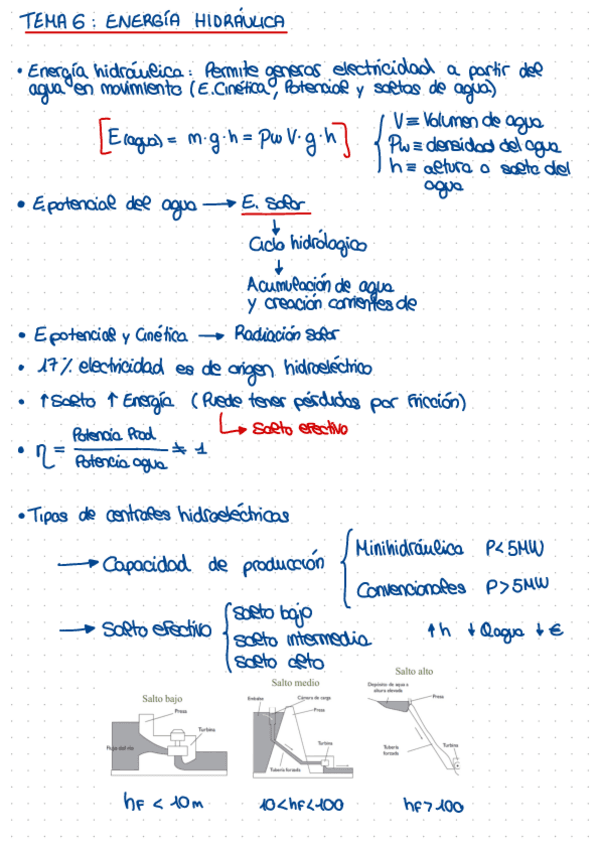 TEMA 6: ENERGÍA HIDRÁULICA
• Energía hidráulica: Permite generar electricidad a partir del
agua en movimiento (E.Cinética, Potencial y saltos de agua)
[E(agua) = m·g·h = ρw V·g·h]
V ≡ Volumen de agua
ρw ≡ densidad del agua
h ≡ altura o salto del
agua
• E.potencial del agua → E. Solar
↓
Ciclo hidrólogico
↓
Acumulación de agua
y creación corrientes de
• E potencial y Cinética → Radiación solar
• 17% electricidad es de origen hidroeléctrico
• ↑Salto ↑ Energía (Puede tener pérdidas por Fricción)
↳ Salto efectivo
• η = Potencia Prod / Potencia agua ≠ 1
• Tipos de centrales hidroeléctricas
→ Capacidad de producción
Minihidráulica P<5MW
Convencionales P>5MW
→ Salto efectivo
salto bajo
salto intermedia
salto alto
↑h ↓Qagua ↓€
Salto bajo
Presa
Turbina
Flujo del río
Salto medio
Embalse
Cámara de carga
Presa
Turbina
Tubería forzada
Salto alto
Depósito de agua a
altura elevada
Presa
Tubería
forzada
Turbina
hF < 10m
10<hF<100
hF>100